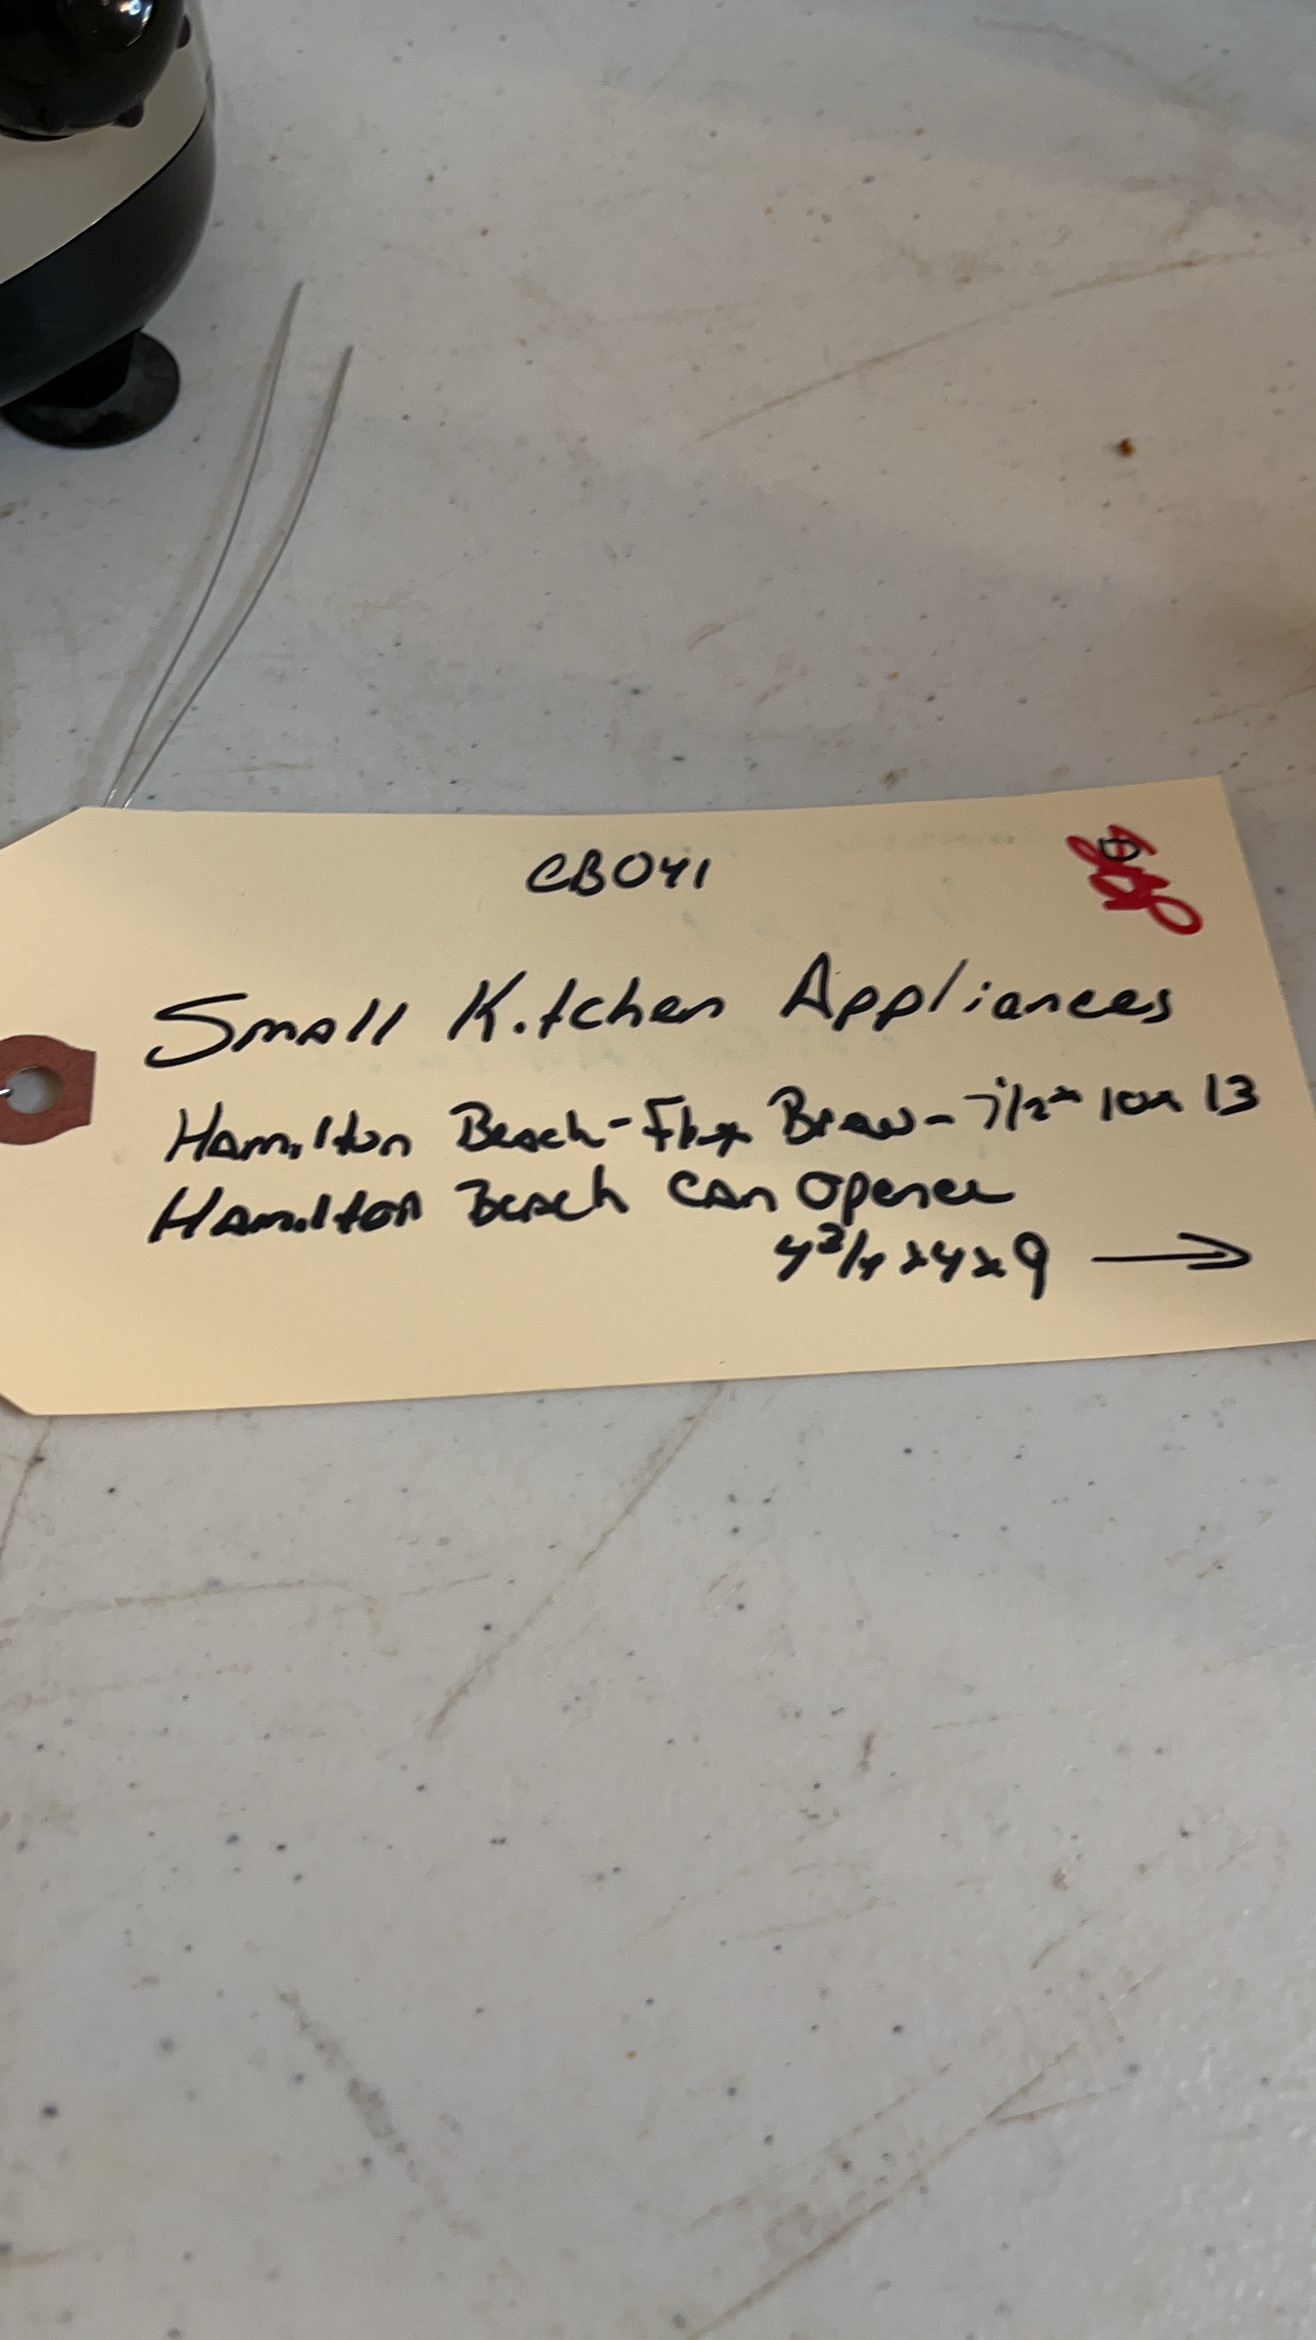 CB041
Small Kitchen Appliances
Hamilton Beach-Flex Brew-7 1/2x 10x 13
Hamilton Beach Can Opener
4 3/4 x4x9 →